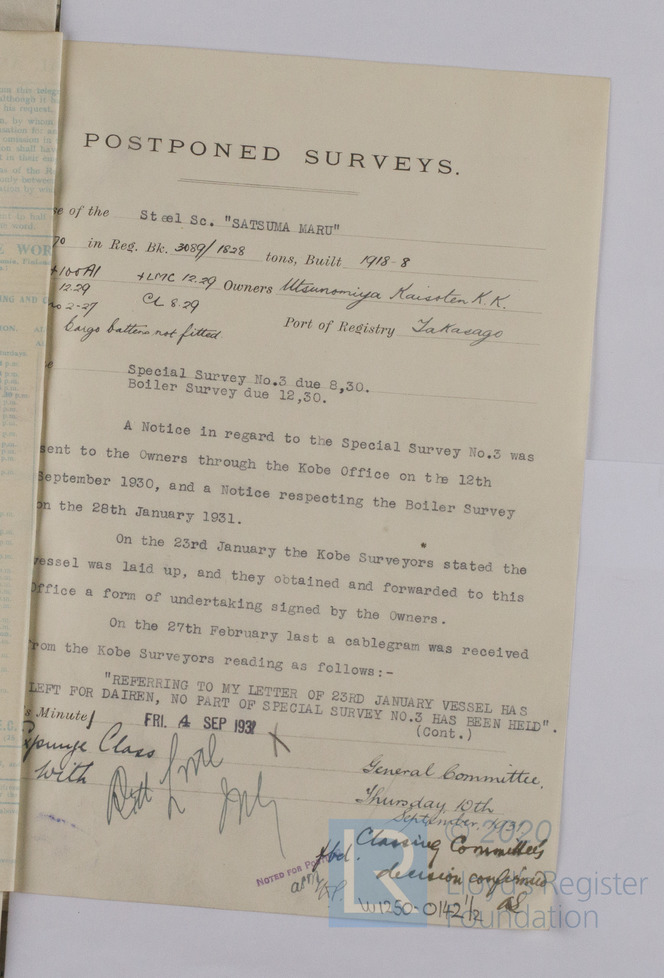 POSTPONED SURVEYS.
of the Steel Sc. "SATSUMA MARU"
in Reg. Bk. 3089/1828 tons, Built 1918-8
+100A1 +LMC 12.29 Owners Utsunomiya Kaisoten K.K.
12.29 CL 8.29
2-27
Cargo battens not fitted Port of Registry Takasago
Special Survey No.3 due 8,30.
Boiler Survey due 12,30.
A Notice in regard to the Special Survey No.3 was
sent to the Owners through the Kobe Office on the 12th
September 1930, and a Notice respecting the Boiler Survey
on the 28th January 1931.
On the 23rd January the Kobe Surveyors stated the
vessel was laid up, and they obtained and forwarded to this
Office a form of undertaking signed by the Owners.
On the 27th February last a cablegram was received
from the Kobe Surveyors reading as follows:-
"REFERRING TO MY LETTER OF 23RD JANUARY VESSEL HAS
LEFT FOR DAIREN, NO PART OF SPECIAL SURVEY NO.3 HAS BEEN HELD".
(Cont.)
Minute FRI. 4 SEP 1931
Expunge Class
with
General Committee,
Thursday 10th
September, 1931
Classing Committee's
decision confirmed
NOTED FOR
W1250-0142 1/2
© 2020
LR
Lloyd's Register
Foundation